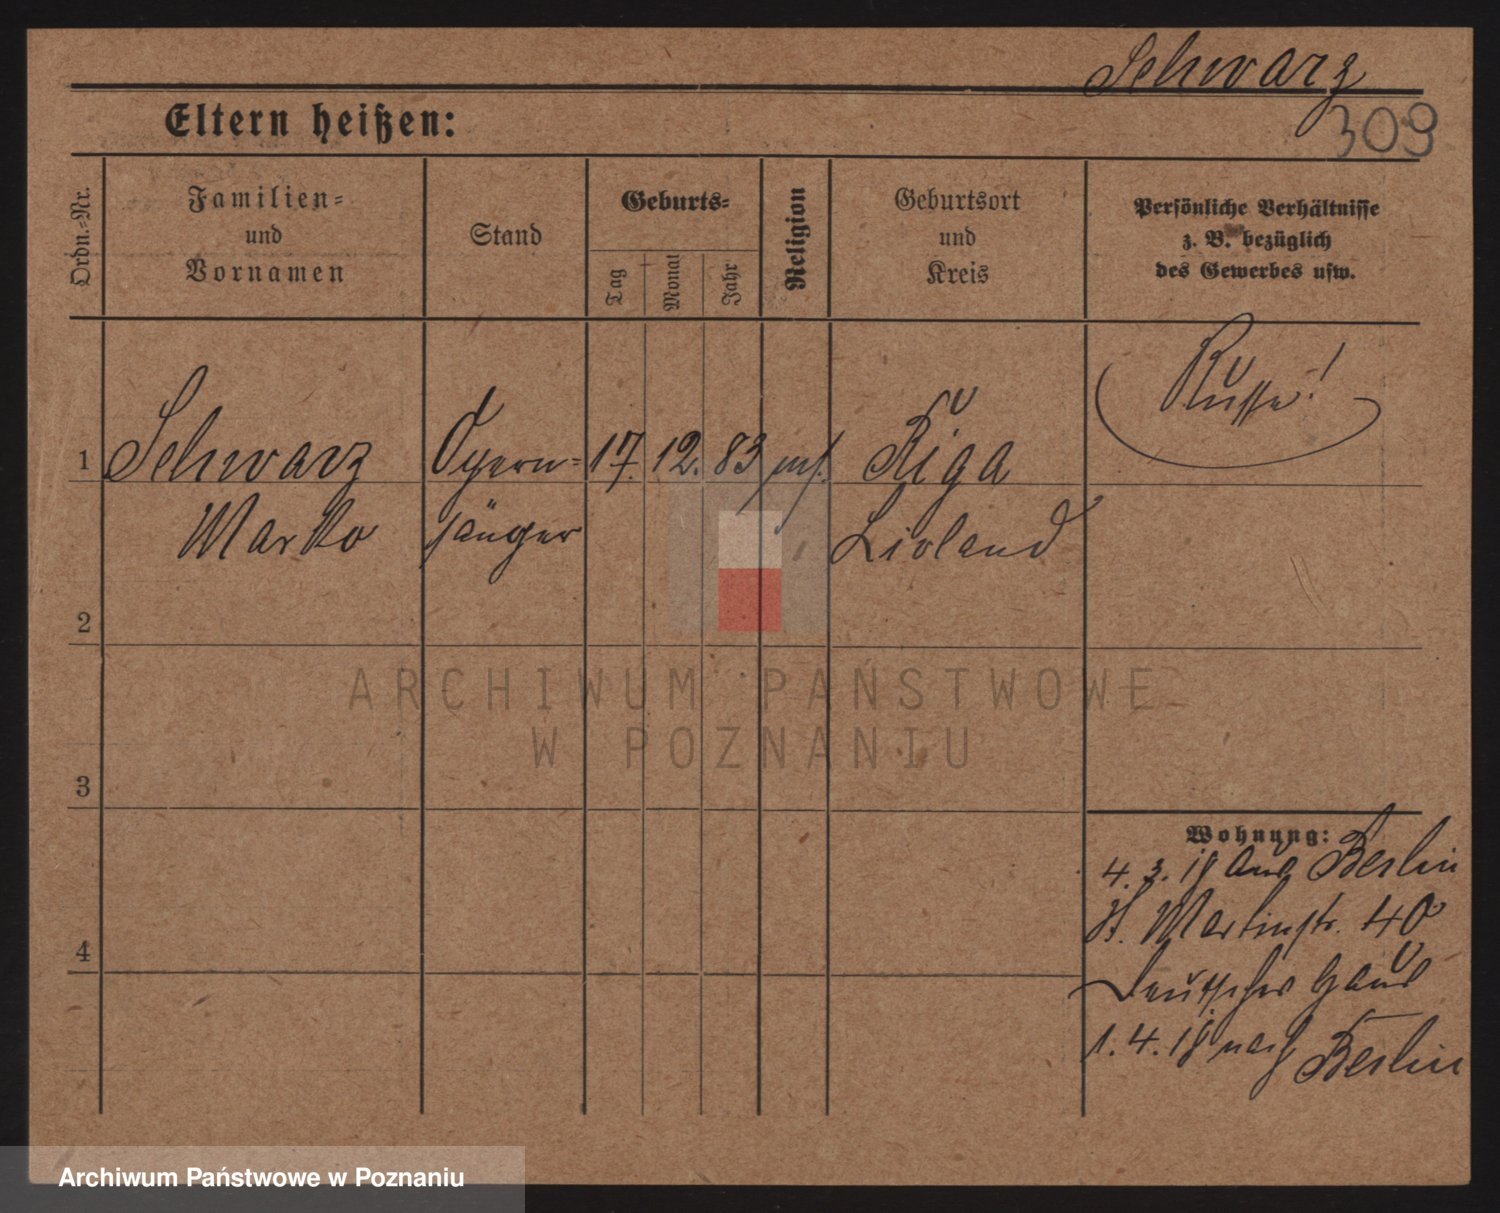 Schwarz
309
Eltern heißen:
Ordn.-Nr.
Familien-
und
Vornamen
Stand
Geburts-
Tag
Monat
Jahr
Religion
Geburtsort
und
Kreis
Persönliche Verhältnisse
z. B. bezüglich
des Gewerbes usw.
Russe!
1 Schwarz Opern- 17. 12. 83 Riga
Marko sänger Livland
2
3
4
Wohnung:
4. 3. 18 aus Berlin
St. Martinstr. 40
Deutsches Haus
1. 4. 18 nach Berlin
ARCHIWUM PAŃSTWOWE
W POZNANIU
Archiwum Państwowe w Poznaniu